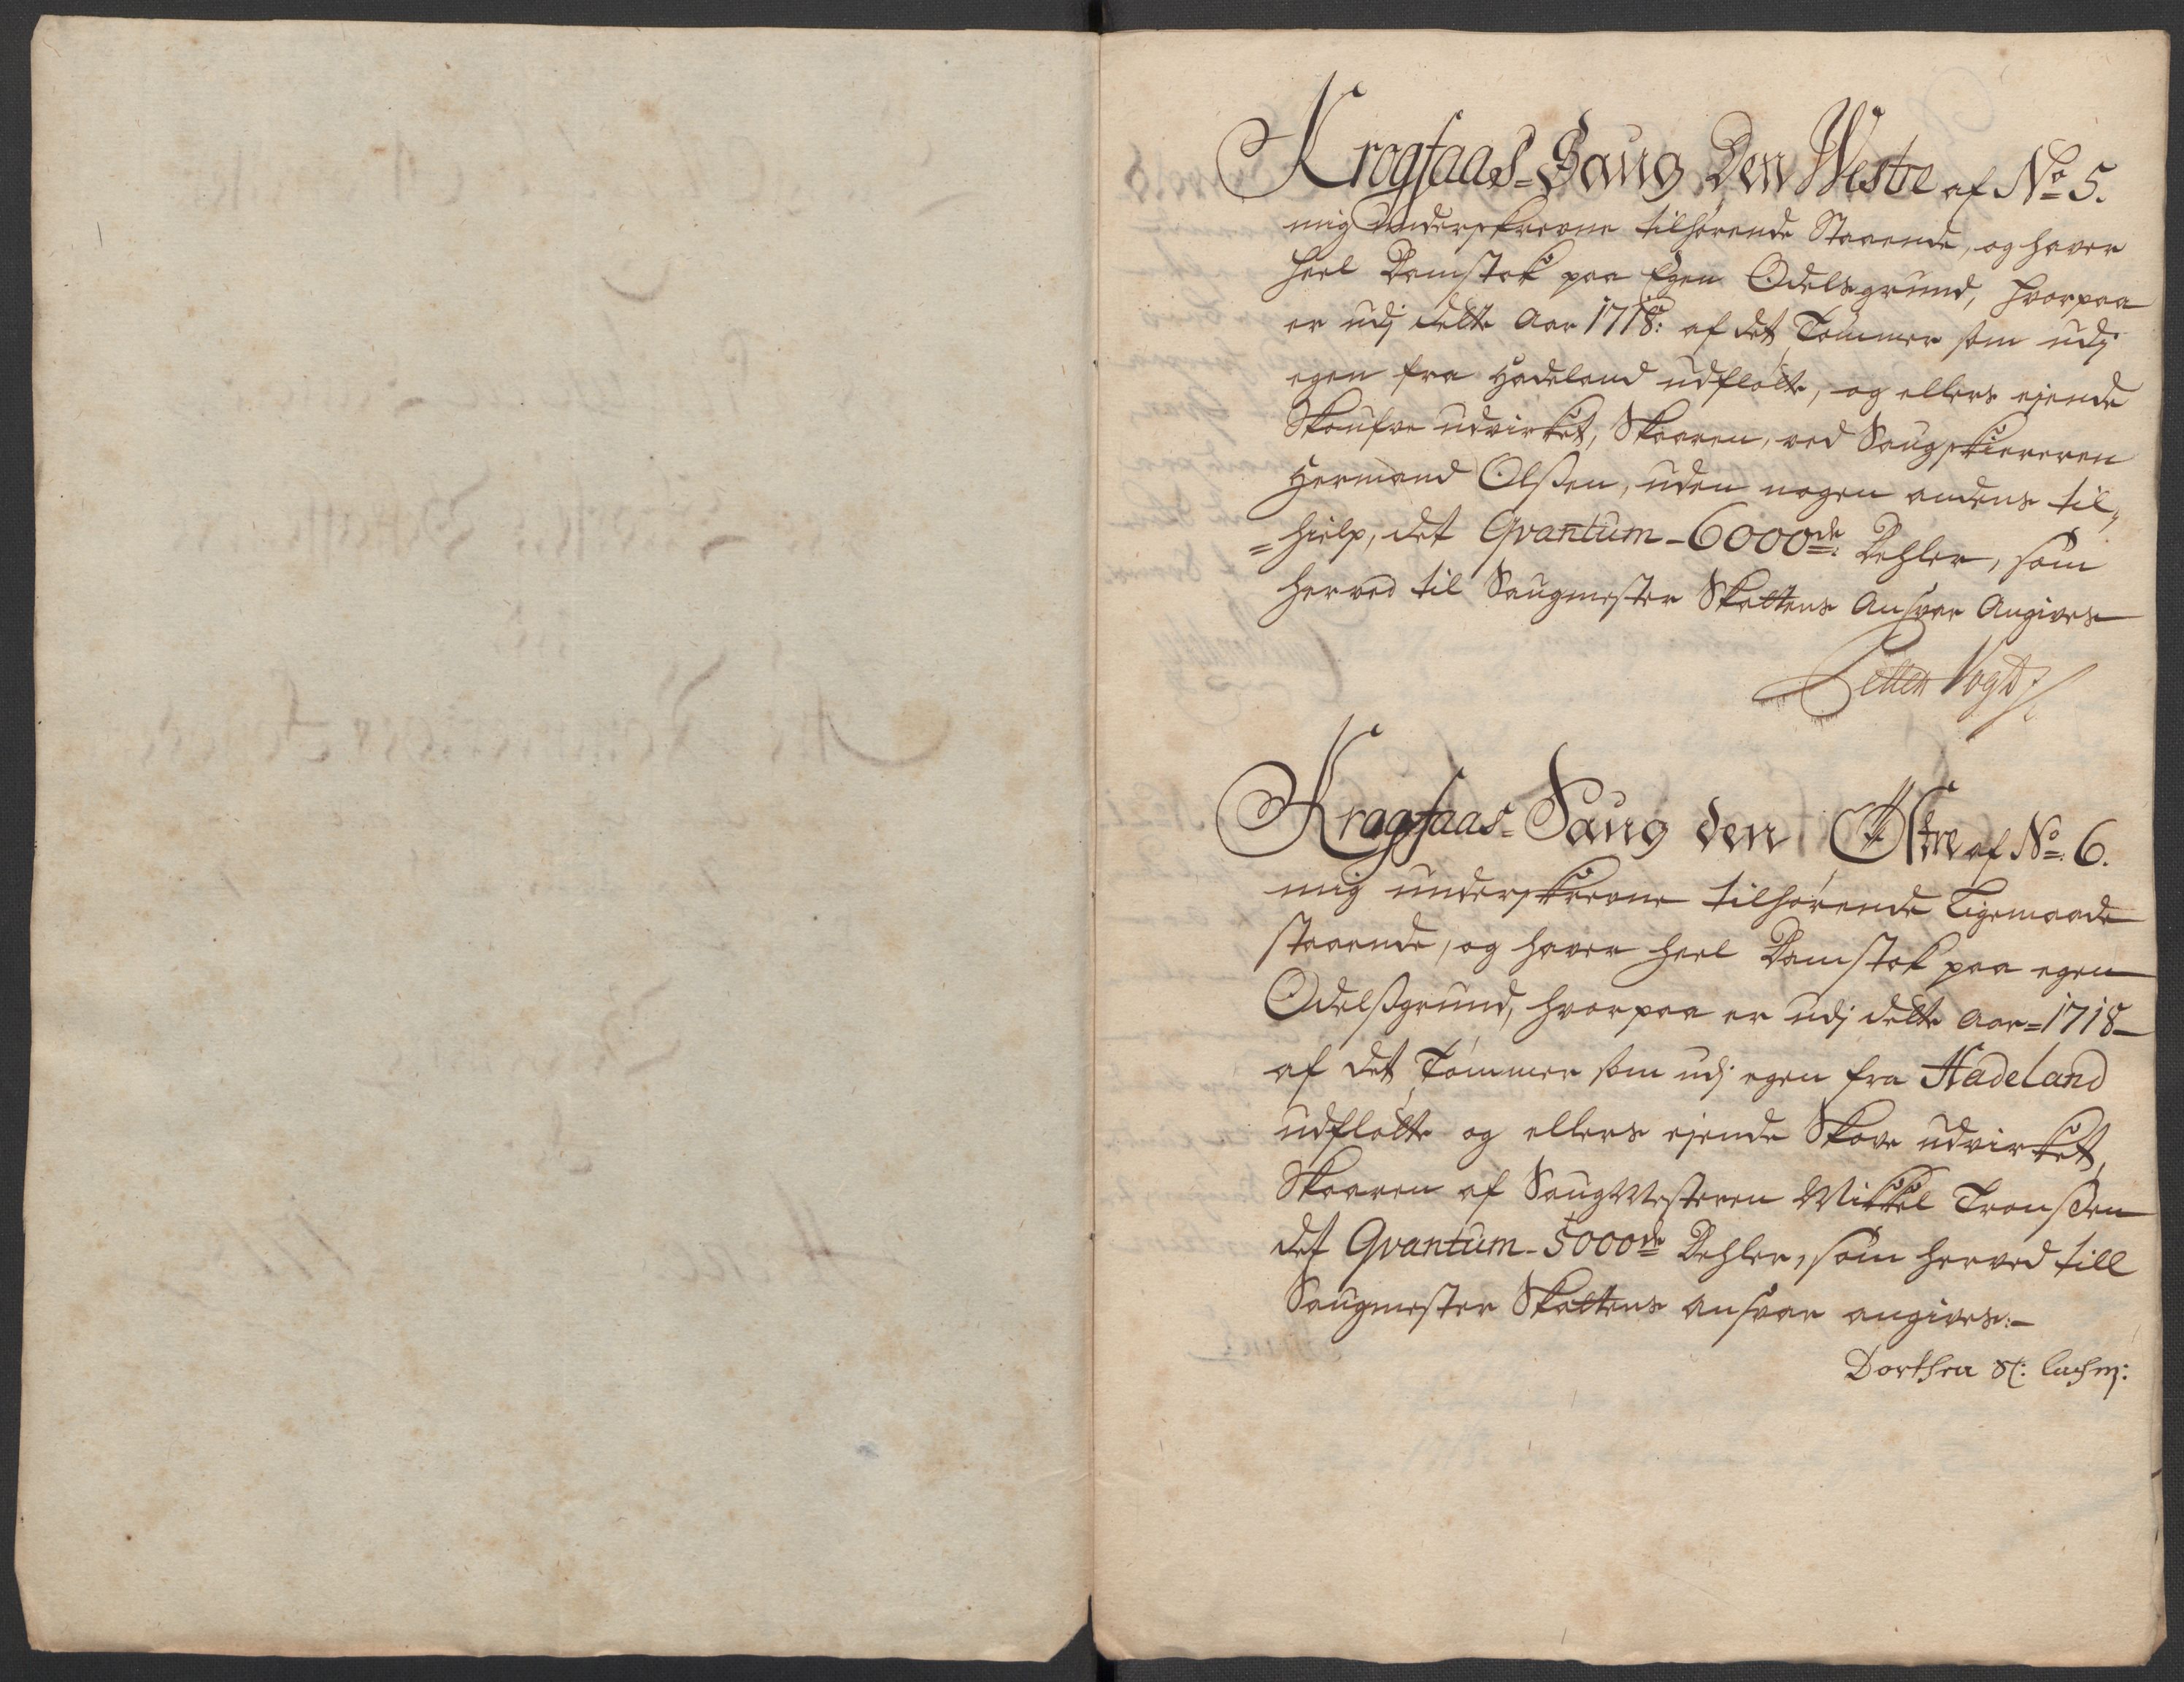 Krogfaas-Saug Den Westre af No 5.
mig underskrevne tilhørende Staaende, og haver
heel Damstok paa Egen Odelsgrund, hvorpaa
er udj dette Aar 1718: af det Tømmer som udj
egen fra Hadeland udfløtte, og ellers ejende
Skoufve udvirket, Skaaren, ved Saugskiereren
Hermand Olßen, uden nogen andens til,
=hielp, det Qvantum-6000de: Dehler, som
herved til Saugmester Skattens Ansvar Angives
Petter Vogdt
Kragfaas-Saug den Østre af No: 6.
mig underskrevne tilhørende Ligemaade
staaende, og haver heel Damstok paa egen
Odelßgrund, hvorpaa er udj dette Aar=1718-
af det Tømmer som udj egen fra Hadeland
udfløtte og ellers ejende Skove udvirket,
Skaaren af Saugmesteren Mikkel Tronßen
det Qvantum-5000de Dehler, som herved till
Saugmester Skattens ansvar angives:-
Dorthea Sl: Lachm: